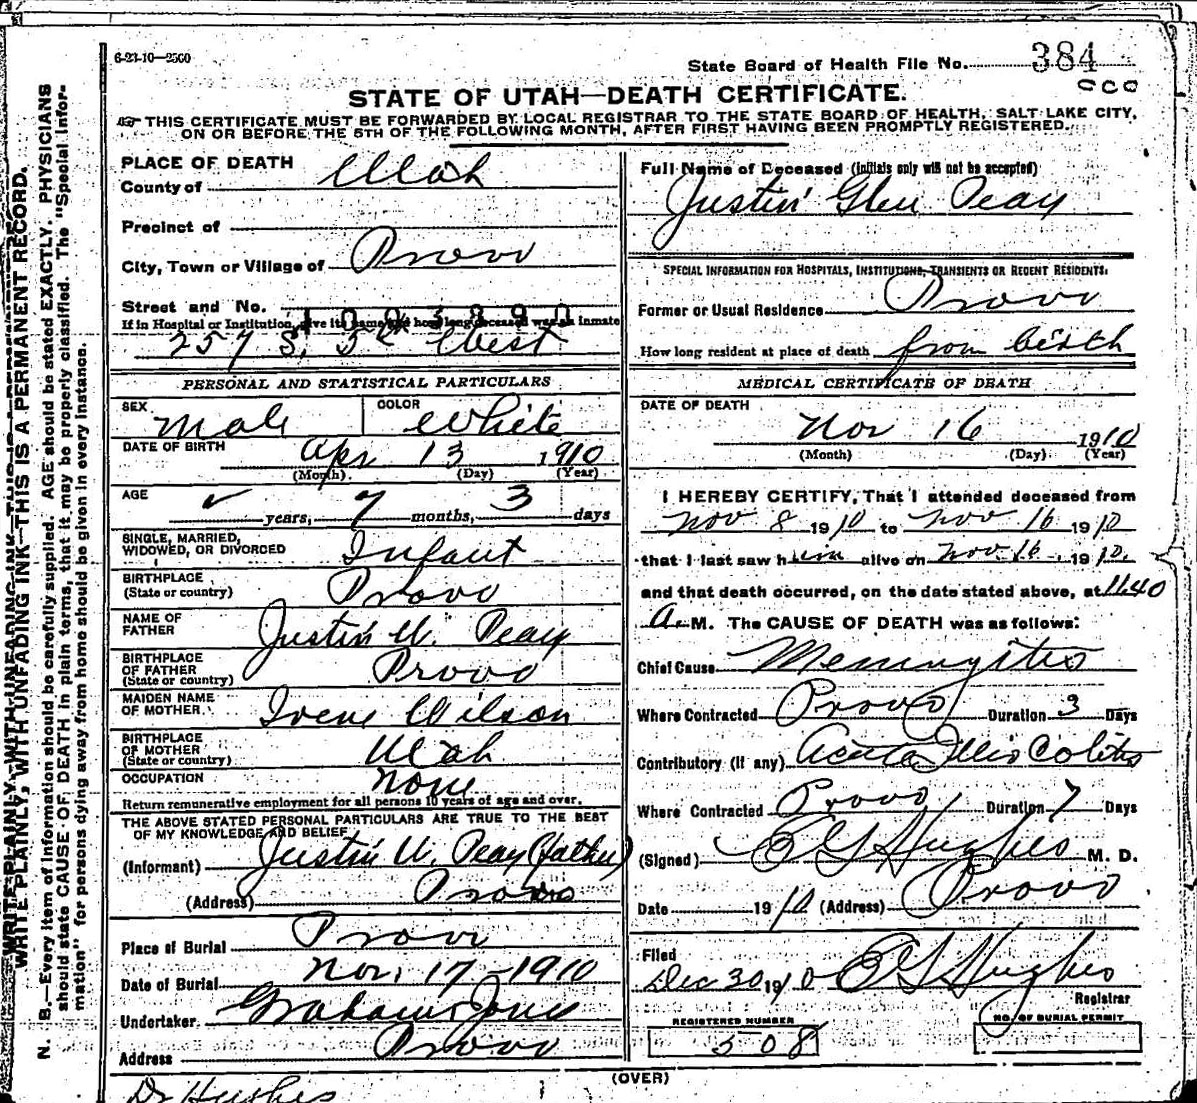 6-23-10—2500
State Board of Health File No. 384
STATE OF UTAH—DEATH CERTIFICATE.
THIS CERTIFICATE MUST BE FORWARDED BY LOCAL REGISTRAR TO THE STATE BOARD OF HEALTH, SALT LAKE CITY,
ON OR BEFORE THE 5TH OF THE FOLLOWING MONTH, AFTER FIRST HAVING BEEN PROMPTLY REGISTERED.
PLACE OF DEATH
County of Utah
Precinct of
City, Town or Village of Provo
Street and No.
If in Hospital or Institution, give its name and how long deceased was an inmate
257 S. 5th West
PERSONAL AND STATISTICAL PARTICULARS
SEX Male COLOR White
DATE OF BIRTH Apr 13 1910
(Month) (Day) (Year)
AGE ✓ years, 7 months, 3 days
SINGLE, MARRIED,
WIDOWED, OR DIVORCED Infant
BIRTHPLACE
(State or country) Provo
NAME OF
FATHER Justin W. Peay
BIRTHPLACE
OF FATHER
(State or country) Provo
MAIDEN NAME
OF MOTHER Irene Wilson
BIRTHPLACE
OF MOTHER
(State or country) Utah
OCCUPATION none
Return remunerative employment for all persons 10 years of age and over.
THE ABOVE STATED PERSONAL PARTICULARS ARE TRUE TO THE BEST
OF MY KNOWLEDGE AND BELIEF
(Informant) Justin W. Peay (father)
(Address) Provo
Place of Burial Provo
Date of Burial Nov. 17 - 1910
Undertaker
Address Provo
Dr Hughes
Full Name of Deceased (initials only will not be accepted)
Justin Glen Peay
SPECIAL INFORMATION FOR HOSPITALS, INSTITUTIONS, TRANSIENTS OR RECENT RESIDENTS.
Former or Usual Residence Provo
How long resident at place of death from birth
MEDICAL CERTIFICATE OF DEATH
DATE OF DEATH
Nov 16 1910
(Month) (Day) (Year)
I HEREBY CERTIFY, That I attended deceased from
Nov 8 1910 to Nov 16 1910
that I last saw him alive on Nov. 16, 1910.
and that death occurred, on the date stated above, at 11.40
A. M. The CAUSE OF DEATH was as follows:
Chief Cause Meningitis
Where Contracted Provo Duration 3 Days
Contributory (if any) Acute Illio Colitis
Where Contracted Provo Duration 7 Days
(Signed) Hughes M. D.
Date 1910 (Address) Provo
Filed
Dec 30 1910 Hughes
Registrar
REGISTERED NUMBER
308
NO. OF BURIAL PERMIT
(OVER)
WRITE PLAINLY, WITH UNFADING INK—THIS IS A PERMANENT RECORD.
N. B.—Every item of information should be carefully supplied. AGE should be stated EXACTLY. PHYSICIANS
should state CAUSE OF DEATH in plain terms, that it may be properly classified. The "Special Infor-
mation" for persons dying away from home should be given in every instance.